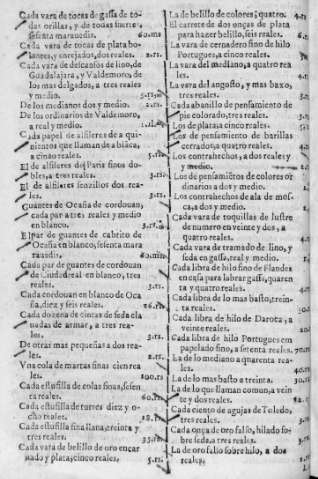 Cada vara de tocas de gassa de to-
das orillas, y de todas suertes
sesenta marauedis. 60.ms
Cada vara de tocas de plata bo-
lantes, y enrejados, dos reales. 2.rs.
Cada vara de descansos de lino, de
Guadalajara, y Valdemoro, de
los mas delgados, a tres reales
y medio.
De los medianos dos y medio. 2.rs.
De los ordinarios de Valdemoro,
a real y medio.
Cada papel de alfileres de a qui-
nientos que llaman de
a cinco reales. 5.rs.
El de alfileres de Paris finos do-
bles, a tres reales. 3.rs.
El de alfileres senzillos dos rea-
les.
Guantes de Ocaña de cordouan,
cada par a tres reales y medio
en blanco.
El par de guantes de cabrito de
Ocaña en blanco, sesenta mara
uedis. 60.ms
Cada par de guantes de cordouan
de Ciudadreal en blanco, tres
reales. 3.rs.
Cada cordouan en blanco de Oca
ña, diez y seis reales. 16.rs.
Cada dozena de cintas de seda cla
uadas de armar, a tres rea-
les. 3.rs.
De otras mas pequeñas a dos rea-
les. 2.rs.
Vna cola de martas finas cien rea
les. 100.rs
Cada estufilla de colas finas, sesen
ta reales. 60.rs
Cada estufilla de turres diez y o-
cho reales. 18.rs
Cada estufilla fina llana, treinta y
tres reales. 33.rs
Cada vara de belillo de oro encar
nado y plata, cinco reales. 5.rs.
La de belillo de colores, quatro. 4.rs
El carrete de dos onças de plata
para hazer belillo, seis reales. 6.rs
La vara de cernadero fino de hilo
Portugues, a cinco reales. 5.rs
La vara del mediano, a quatro rea
les. 4.rs
La vara del angosto, y mas baxo,
tres reales. 3.rs
Cada abanillo de pensamiento de
pie colorado, tres reales. 3.rs
Los de plata, a cinco reales. 5.rs
Los de pensamiento de barillas
cerrado, a quatro reales. 4.rs
Los contrahechos, a dos reales y
y medio.
Los de pensamientos de colores or
dinarios a dos y medio.
Los contrahechos de ala de mos-
ca, a dos y medio.
Cada vara de toquillas de lustre
de numero en veinte y dos, a
quatro reales. 4.rs
Cada vara de tramado de lino, y
seda en gassa, real y medio.
Cada libra de hilo fino de Flandes
en para labrar gassa, quaren
ta y quatro reales.
Cada libra de lo mas basto, trein-
ta reales. 30.rs
Cada libra de hilo de Daroca, a
veinte reales. 20.rs
Cada libra de hilo Portugues em
papelado fino, a setenta reales. 70.rs
La de lo mediano a quarenta rea-
les. 40.rs
La de lo mas basto a treinta. 30.rs
La de lo que llaman comun, a vein
te y dos reales. 22.rs
Cada ciento de agujas de Toledo,
tres reales. 3.rs
Cada onça de oro falso, hilado so-
bre seda, a tres reales. 3.rs
La de oro falso sobre hilo, a dos
reales,